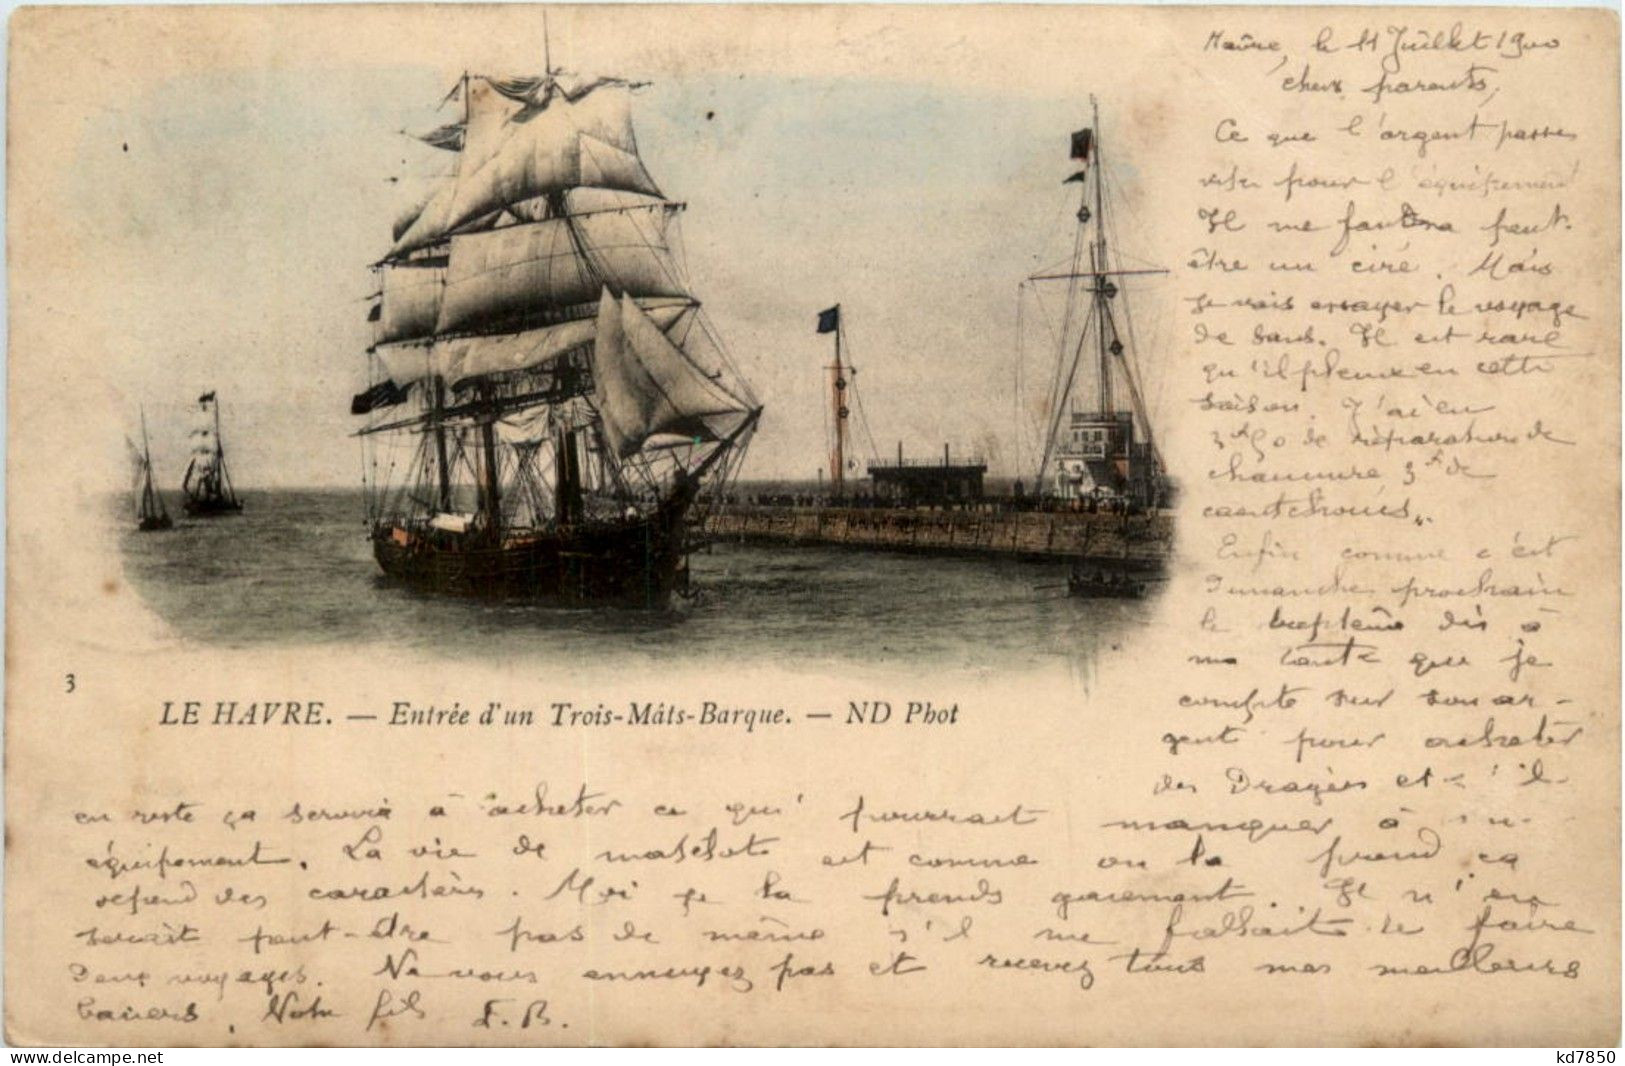 Havre, le 11 Juillet 1900
chers parents,
Ce que l'argent passe
vite pour l'équipement
Il me faudra peut-
être un ciré. Mais
je vais essayer le voyage
de sans. Il est rare
qu'il pleuve en cette
saison. J'ai eu
3f50 de réparation de
chaussure 3f de
caoutchoucs.,
Enfin comme c'est
Dimanche prochain
le baptême dis à
ma tante que je
compte sur son ar-
gent pour acheter
des Dragées et s'il
en reste ça servira à acheter ce qui pourrait manquer à mon
équipement. La vie de matelot est comme on la prend ça
dépend des caractères. Moi je la prends gaiement. Il n'en
serait peut-être pas de même s'il me fallait le faire
Deux voyages. Ne vous ennuyez pas et recevez tous mes meilleurs
baisers, Votre fils F. B.
3
LE HAVRE. — Entrée d'un Trois-Mâts-Barque. — ND Phot
www.delcampe.net
kd7850